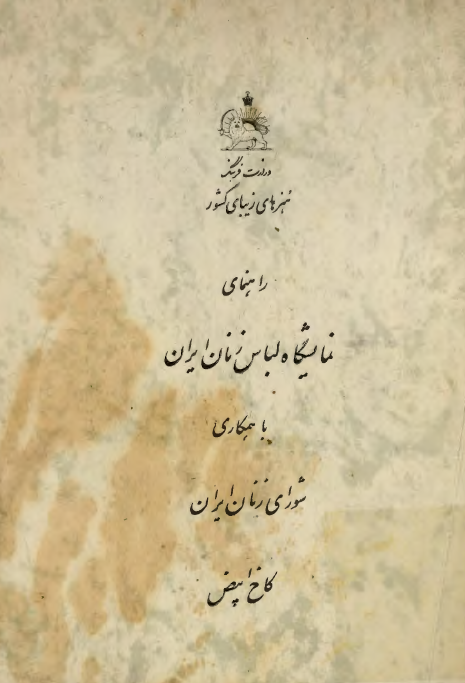 وزارت فرهنگ
هنرهای زیبای کشور
راهنمای
نمایشگاه لباس زنان ایران
با همکاری
شورای زنان ایران
کاخ ابیض